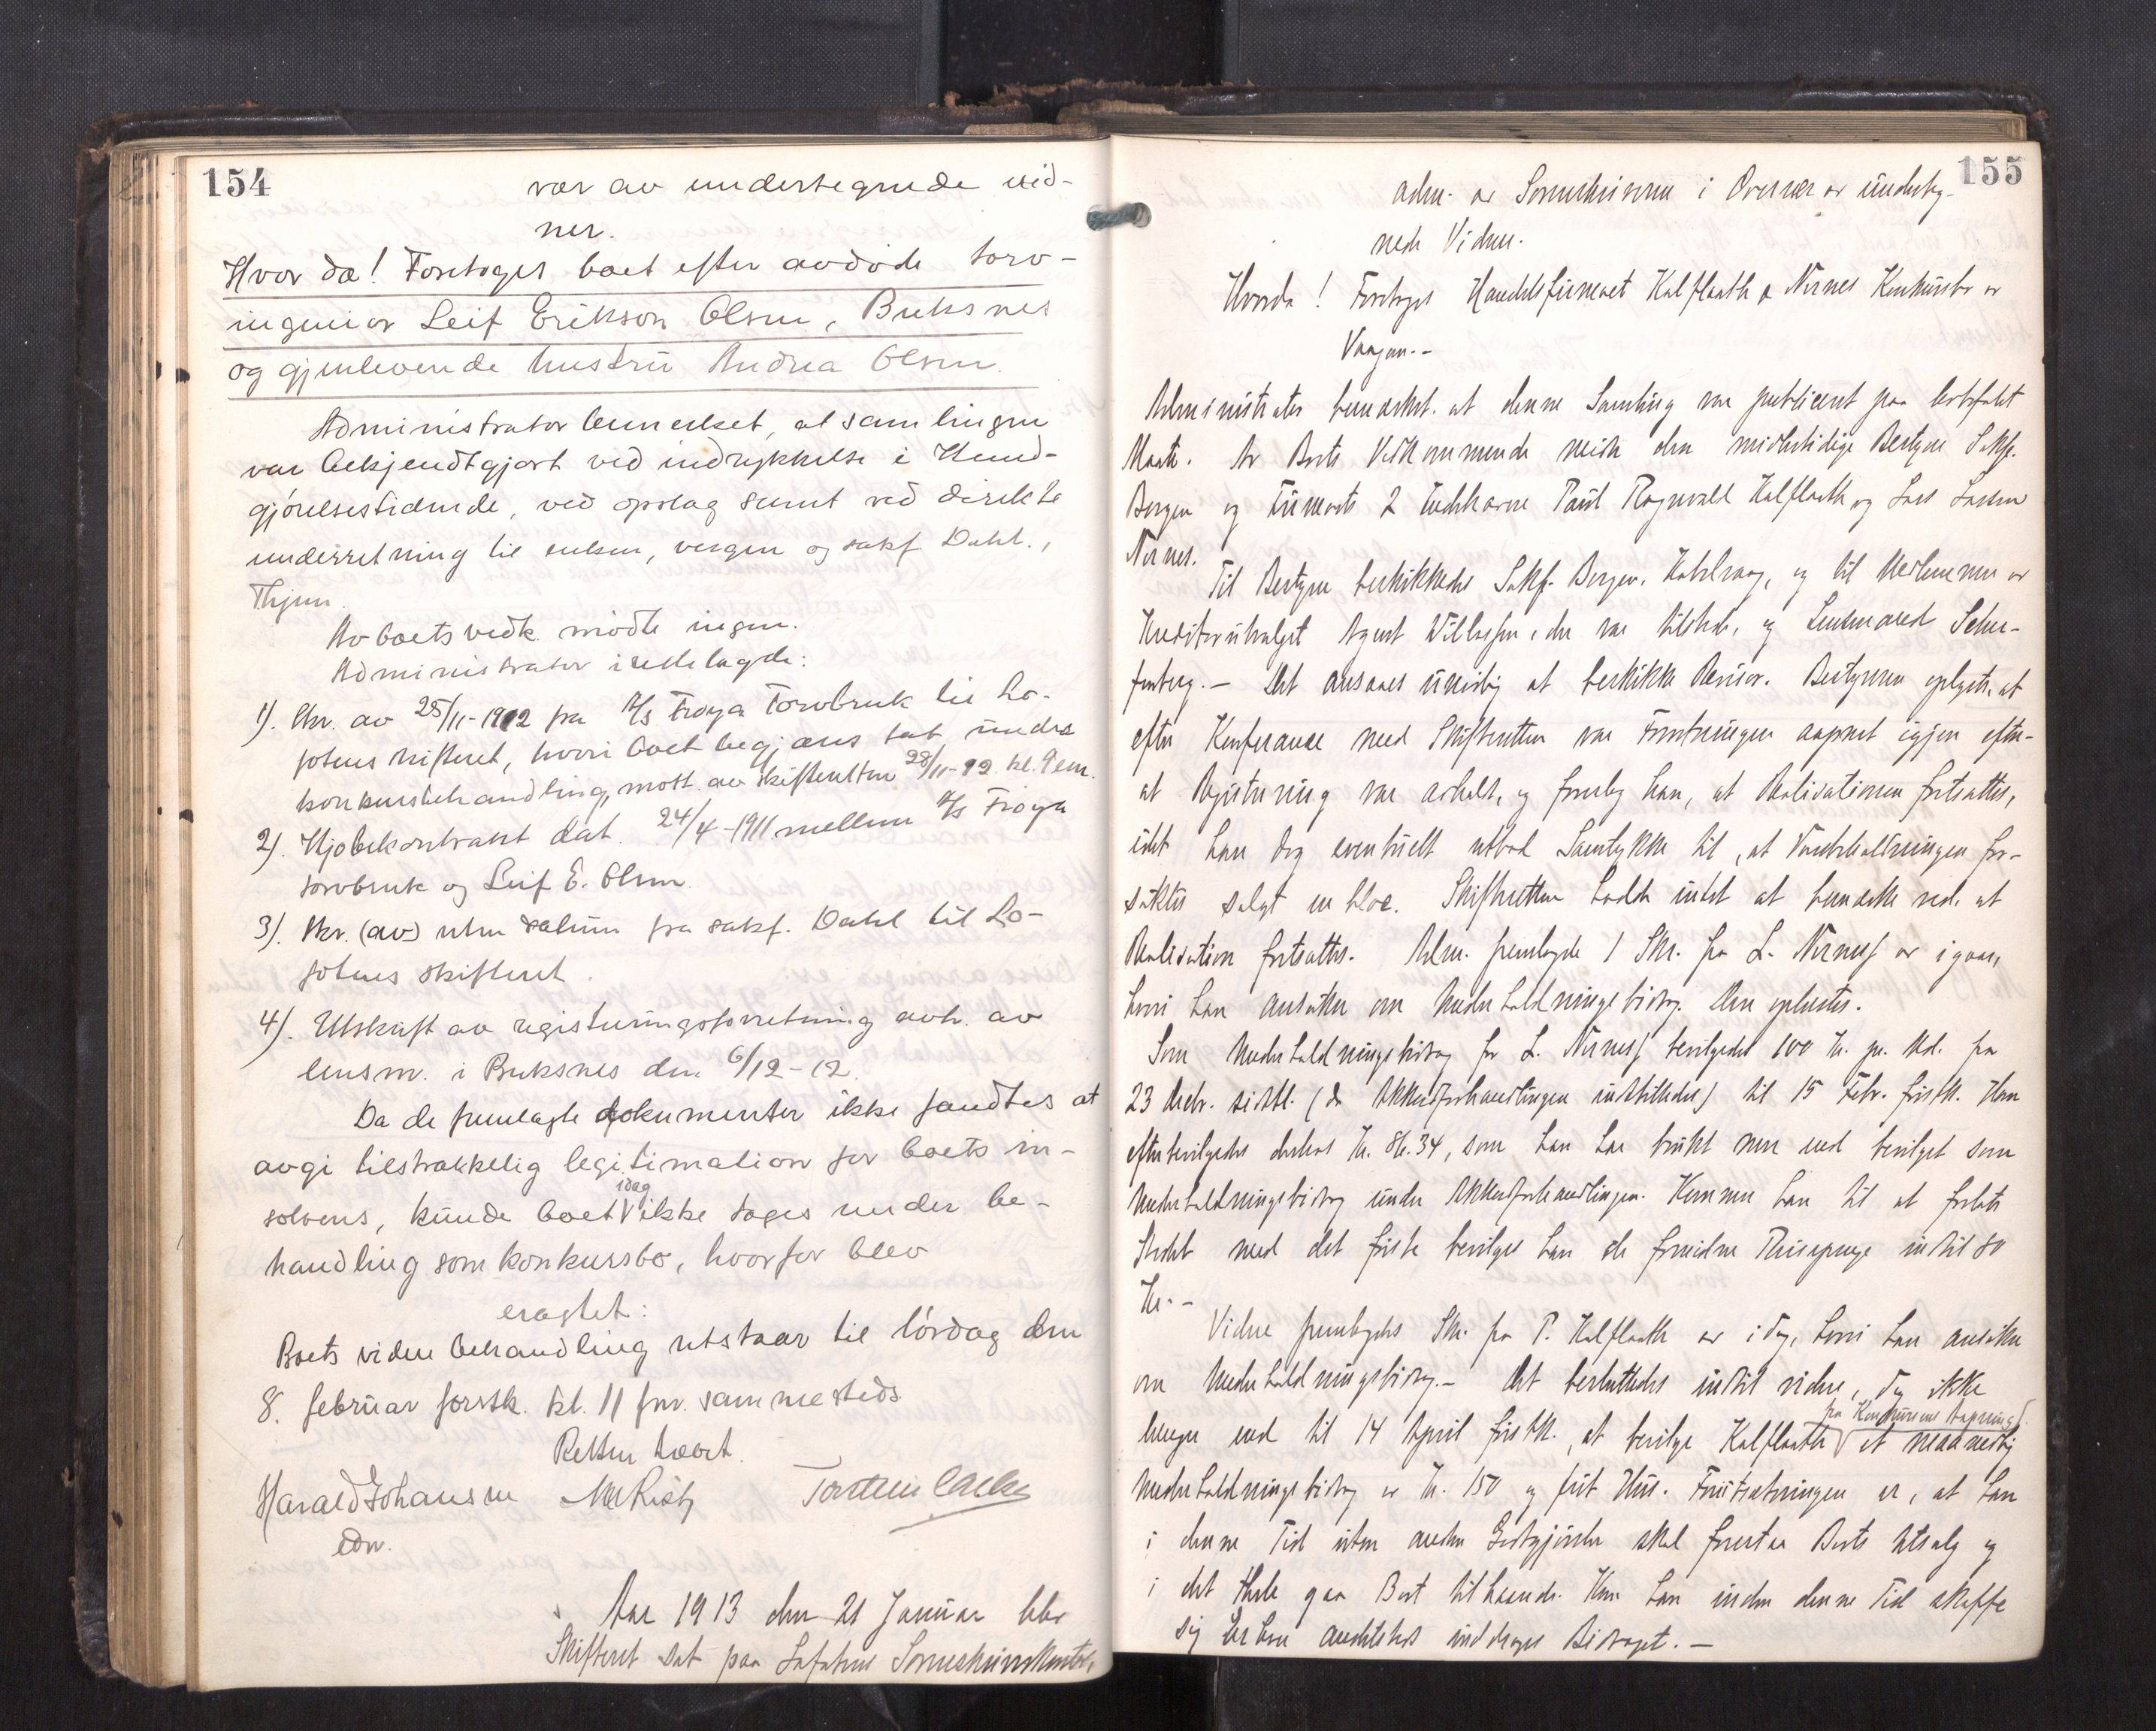 154
vær av undertegnede vid-
ner.
Hvorda! Foretoges boet efter avdøde torv-
ingeniør Leif Erikson Olsen, Buksnes
og gjenlevende hustru Andrea Olsen.
Administrator bemerket, at samlingen
var bekjendtgjort ved indrykkelse i Kund-
gjørelsestidende, ved opslag samt ved direkte
underretning til enken, vergen og sakf. Dahl,
Av boets vedk. mødte ingen.
Administrator irettelagde:
1). Skr. av 25/11-1912 fra A/S Frøya Torvbruk til Lo-
fotens skifteret, hvori boet begjæres tat under
konkursbehandling, mott. av skifteretten 28/11-12 kl. 9 em.
2). Kjøbekontrakt dat. 24/4-1911 mellem A/S Frøya
torvbruk og Leif E. Olsen.
3). Skr. (av) uten datum fra sakf. Dahl til Lo-
fotens skifteret.
4). Utskrift av registreringsforretning avh. av
lensm. i Buksnes den 6/12-12.
Da de fremlagte dokumenter ikke fandtes at
avgi tilstrækkelig legitimation for boets in-
solvens, kunde boet idag ikke tages under be-
handling som konkursbo, hvorfor blev
eragtet:
Boets videre behandling utstaar til lørdag den
8. februar førstk. kl. 11 fm. sammesteds
Retten hævet.
Harald Johansen
edv.
Aar 1913 den 21 Januar blev
Skifteret sat paa Lofotens Sorenskriverkontor,
155
adm. av Sorenskriveren i Overvær av underteg-
nede Vidner.
Hvorda! Foretoges Handelsfirmaet Kalflaath & Nernes Konkursbo av
Vaagan.-
Administrator bemerket, at denne Samling var publicert paa lovbefalt
Maate. Av Boets Vedkommende møtte den midlertidige Bestyrer Sakf.
Bergen og Firmaets 2 Indehavere Paul Ragnvald Kalflaath og Lars Larsen
Nernes.
Til Bestyrer beskikkedes Sakf. Bergen, Kabelvaag, og til Medlemmer av
Kreditorutvalget Agent Willassen, der var tilstede, og Lensmand Schar-
fenberg.- Det ansaaes unødig at beskikke Revisor. Bestyreren oplyste, at
efter Konferance med Skifteretten var Forretningen aapnet igjen efter-
at Registrering var avholdt, og foreslog han, at Realisationen fortsattes,
idet han dog eventuelt utbad Samtykke til, at Varebeholdningen for-
søktes solgt en bloc. Skifteretten hadde intet at bemerke ved, at
Realisation fortsattes. Adm. fremlagde 1 Skr. fra L. Nernes av igaar,
hvori han ansøker om Underholdningsbidrag. Den oplæstes.
Som Underholdningsbidrag for L. Nernes bevilgedes 100 Kr. pr. Md. fra
23 Decbr. sidstl. (da Akkordforhandlingen indstilledes) til 15 Febr. førstk. Ham
efterbevilgedes derhos Kr. 86.34, som han har brukt mer end bevilget som
Underholdningsbidrag under Akkordforhandlingen. Kommer han til at forlate
Stedet med det første bevilges han de fornødne Reisepenge indtil 80
Kr.-
Videre fremlagdes Skr. fra P. Kalflaath av idag, hvori han ansøker
om Underholdningsbidrag.- Det besluttedes indtil videre, dog ikke
længer end til 14 April førstk., at bevilge Kalflaath fra Konkursens Aapning et maanedlig
Underholdningsbidrag av Kr. 150 og frit Hus. Forutsætningen er, at han
i denne Tid uten anden Godtgjørelse skal forestaa Boets Utsalg og
i det Hele gaa Boet tilhaande. Kan han inden denne Tid skaffe
sig Erhverv andetsteds inddrages Bidraget.-